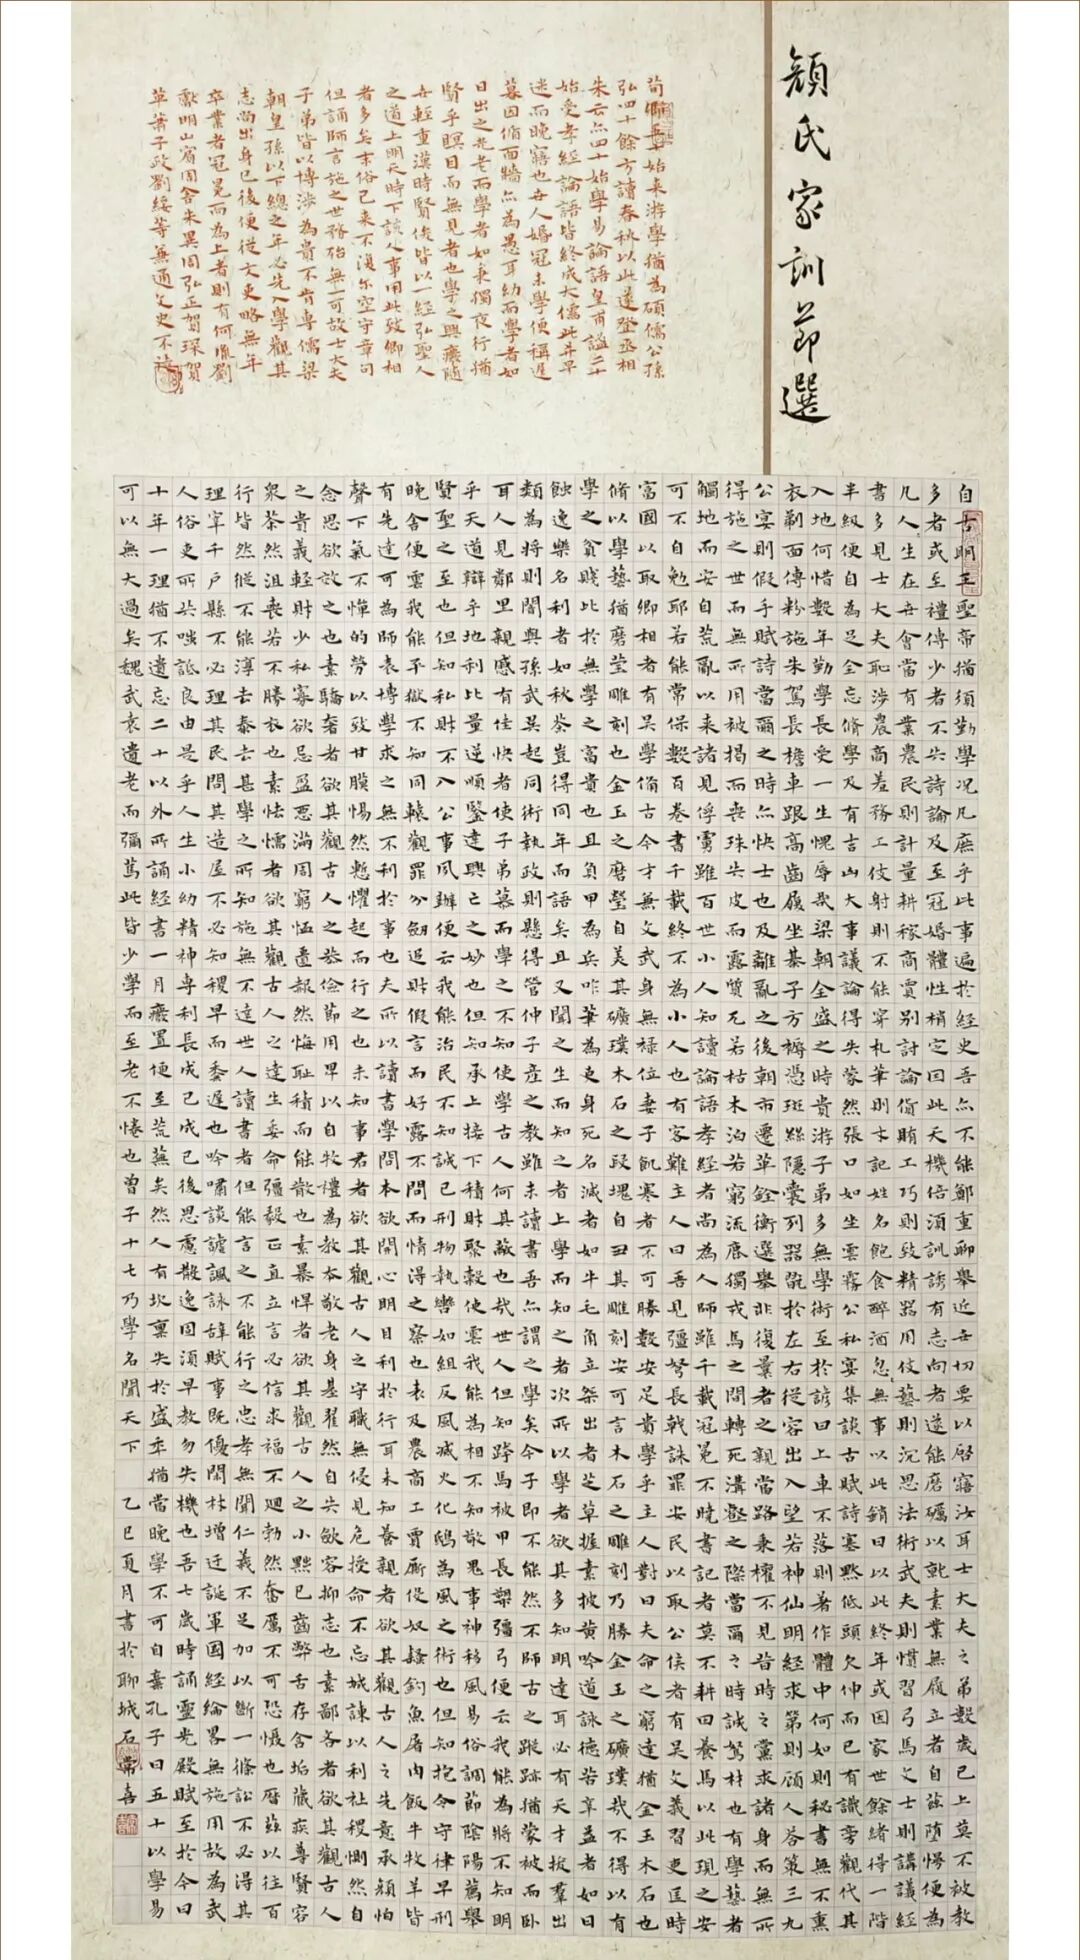 顔氏家訓節選
自古明王聖帝猶須勤學況凡庶乎此事遍於経史吾亦不能鄭重聊舉近世切要以啓寤汝耳士大夫之弟數歲已上莫不被教
多者或至禮傳少者不失詩論及至冠婚體性梢定因此天機倍須訓誘有志向者遂能磨礪以就素業無履立者自茲堕慢便為
凡人生在世會當有業農民則計量耕稼商賈別討論貨賄工巧則致精器用伎藝則沉思法術武夫則慣習弓馬文士則講議經
書多見士大夫恥涉農商羞務工伎射則不能穿札筆則才記姓名飽食醉酒忽無事以此銷日以此終年或因家世餘緒得一階
半級便自為足全忘脩學及有吉凶大事議論得失蒙然張口如坐雲霧公私宴集談古賦詩塞黙低頭欠伸而已有識旁觀代其
入地何惜數年勤學長受一生愧辱哉梁朝全盛之時貴游子弟多無學術至於諺曰上車不落則著作體中何如則秘書無不熏
衣剃面傅粉施朱駕長檐車跟高齒履坐棊子方褥憑斑絲隱囊列器翫於左右從容出入望若神仙明經求第則顧人答策三九
公宴則假手賦詩當爾之時亦快士也及離亂之後朝市遷革銓衡選舉非復曩者之親當路秉權不見昔時之黨求諸身而無所
得施之世而無所用被揭而喪珠失皮而露質兀若枯木泊若窮流鹿獨戎馬之間轉死溝壑之際當爾之時誠駑材也有學藝者
觸地而安自荒亂以来諸見俘虜雖百世小人知讀論語孝經者尚為人師雖千載冠冕不曉書記者莫不耕田養馬以此現之安
可不自勉耶若能常保數百卷書千載終不為小人也有客難主人曰吾見彊弩長戟誅罪安民以取公侯者有吴文義習吏匡時
富國以取卿相者有吴學備古今才無文武身無禄位妻子飢寒者不可勝數安足貴學乎主人對曰夫命之窮達猶金玉木石也
脩以學藝猶磨瑩雕刻也金玉之磨瑩自美其礦璞木石之段塊自丑其雕刻安可言木石之雕刻乃勝金玉之礦璞哉不得以有
學之貧賤比於無學之富貴也且負甲為兵咋筆為吏身死名滅者如牛毛角立桀出者芝草握素披黄吟道詠德苦辛益者如日
蝕逸樂名利者如秋荼豈得同年而語矣且又聞之生而知之者上學而知之者次所以學者欲其多知明達耳必有天才拔羣出
類為將則闇與孫武吴起同術執政則懸得管仲子産之教雖未讀書吾亦謂之學矣今子即不能然不師古之蹤跡猶蒙被而卧
耳人見鄰里親戚有佳快者使子弟慕而學之不知使學古人何其蔽也哉世人但知跨馬被甲長槊彊弓便云我能為將不知明
乎天道辯乎地利比量逆順鑒達興亡之妙也但知承上接下積財聚穀使雲我能為相不知敬鬼事神移風易俗調節陰陽薦舉
賢聖之至也但知私財不入公事夙辦便云我能治民不知誠己刑物執轡如組反風滅火化鴟為鳳之術也但知抱令守律早刑
晚舍便雲我能平獄不知同轅觀罪分劍追財假言而奸露不問而情得之察也爰及農商工賈厮役奴隸釣魚屠肉飯牛牧羊皆
有先達可為師表博學求之無不利於事也夫所以讀書學問本欲開心明目利於行耳未知養親者欲其觀古人之先意承顔怡
聲下氣不憚劬勞以致甘腝惕然慙懼起而行之也未知事君者欲其觀古人之守職無侵見危授命不忘誠諫以利社稷惻然自
念思欲效之也素驕奢者欲其觀古人之恭儉節用卑以自牧禮為教本敬老身基瞿然自失歛容抑志也素鄙吝者欲其觀古人
之貴義輕財少私寡欲忌盈惡滿周窮恤匱赧然悔恥積而能散也素暴悍者欲其觀古人之小黜己齒弊舌存含垢藏疾尊賢容
衆荼然沮喪若不勝衣也素怯懦者欲其觀古人之達生委命彊毅正直立言必信求福不廻勃然奮厲不可恐懾也歷茲以往百
行皆然縱不能淳去泰去甚學之所知施無不達世人讀書者但能言之不能行之忠孝無聞仁義不足加以斷一條訟不必得其
理宰千戶縣不必理其民問其造屋不必知稷早而黍遲也吟嘯談謔諷詠辭賦事既優閑材增迂誕軍國經綸畧無施用故為武
人俗吏所共嗤詆良由是乎人生小幼精神專利長成已成已後思慮散逸固須早教勿失機也吾七歲時誦靈光殿賦至於今日
十年一理猶不遺忘二十以外所誦經書一月廢置便至荒蕪矣然人有坎禀失於盛年猶當晚學不可自棄孔子曰五十以學易
可以無大過矣魏武袁遺老而彌篤此皆少學而至老不倦也曾子十七乃學名聞天下 乙巳夏月書於聊城石常喜
荀卿五十始來游學猶為碩儒公孫
弘四十餘方讀春秋以此遂登丞相
朱云亦四十始學易論語皇甫謐二十
始受孝經論語皆終成大儒此并早
迷而晚寤也世人婚冠未學便稱遲
暮因循面牆亦為愚耳幼而學者如
日出之光老而學者如秉獨夜行猶
賢乎瞑目而無見者也學之興廢隨
世輕重漢時賢俊皆以一經弘聖人
之道上明天時下談人事用此致卿相
者多矣末俗已来不復尓空守章句
但誦師言施之世務殆無一可故士大夫
子弟皆以博涉為貴不肯專儒梁
朝皇孫以下總之年必先入學觀其
志尚出身已後便從文吏略無年
卒業者冠冕而為上者則有何胤劉
瓛明山賓周舍朱異周弘正賀琛賀
革蕭子政劉綏等無通文史不